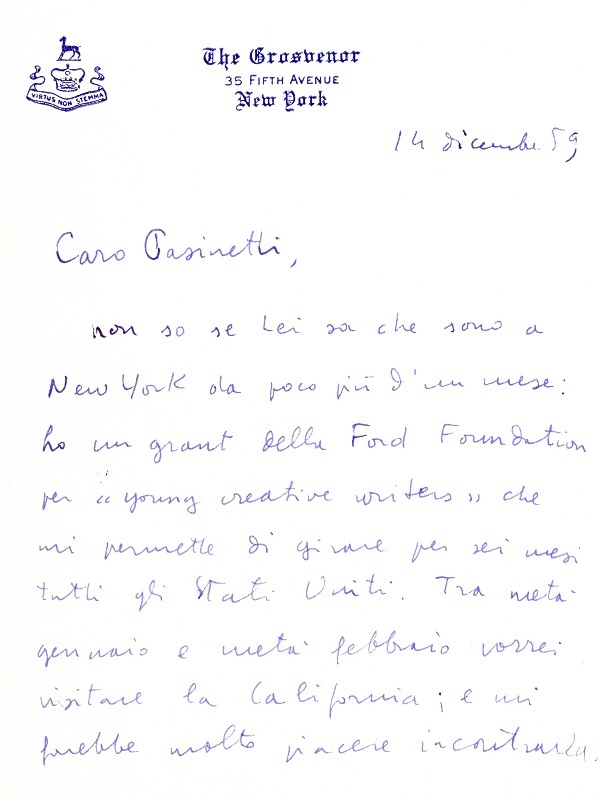 VIRTUS NON STEMMA
The Grosvenor
35 FIFTH AVENUE
New York
14 dicembre 59
Caro Pasinetti,
non so se Lei sa che sono a
New York da poco più d'un mese:
ho un grant della Ford Foundation
per "young creative writers" che
mi permette di girare per sei mesi
tutti gli Stati Uniti. Tra metà
gennaio e metà febbraio vorrei
visitare la California; e mi
farebbe molto piacere incontrarLa.